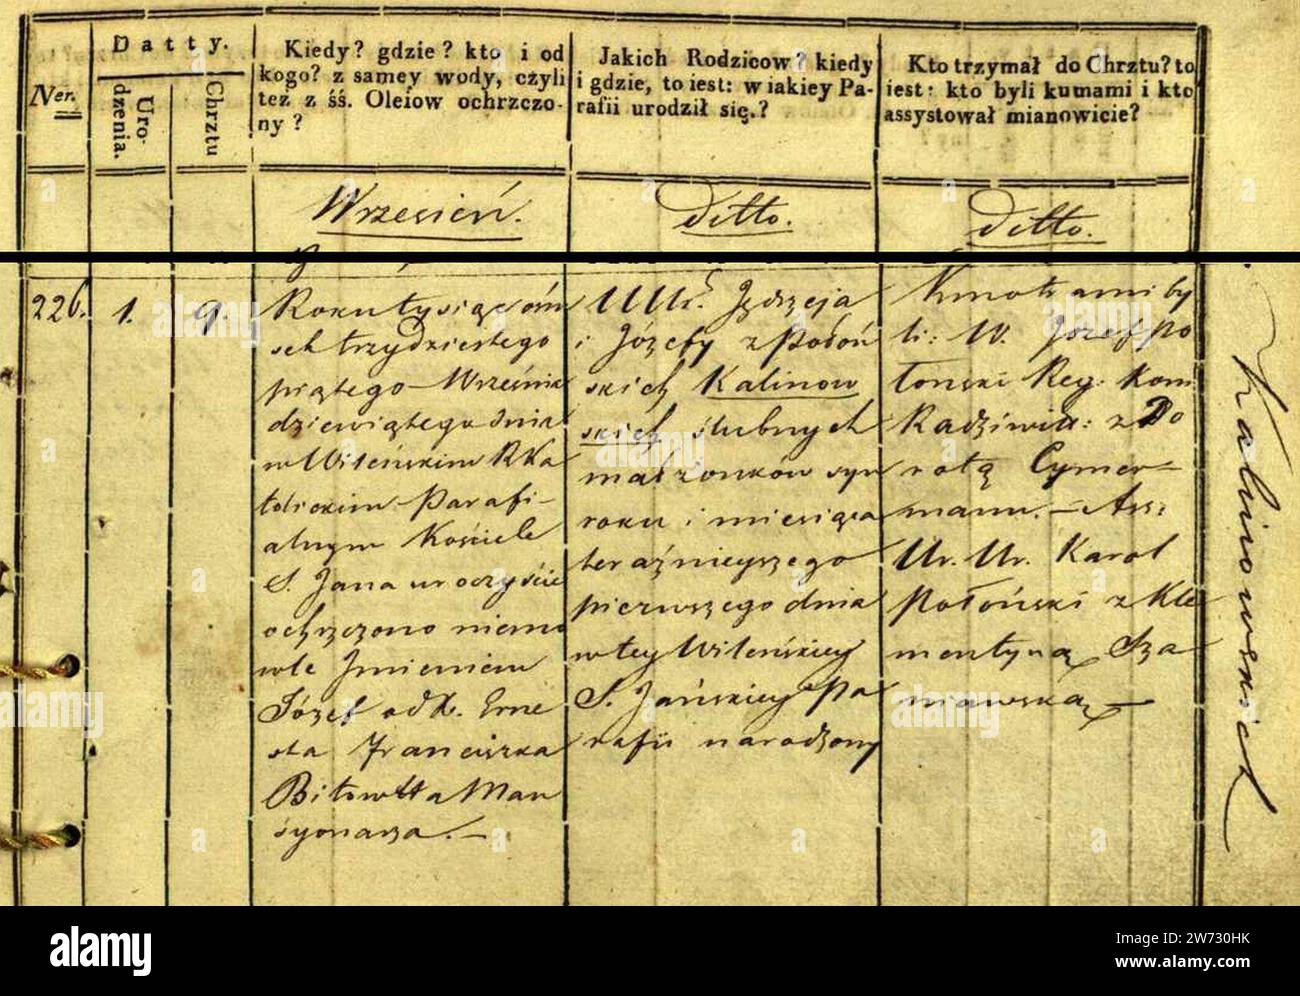 Ner.
Datty.
Urodzenia.
Chrztu
Kiedy? gdzie? kto i od
kogo? z samey wody, czyli
tez z śś. Oleiow ochrzczo-
ny?
Jakich Rodzicow? kiedy
i gdzie, to iest: w iakiey Pa-
rafii urodził się.?
Kto trzymał do Chrztu? to
iest: kto byli kumami i kto
assystował mianowicie?
Wrzesień.
ditto.
ditto.
226.
1.
9.
Roku tysiąc óm
set trzydziestego
piątego Wrześnie
dziewiątego dnia
w Wileńskim RKa
tolickim Parafi-
alnym Kościele
S. Jana uroczyście
ochrzczono niemo
wle Jmieniem
Józef od X. Erne
sta Franciszka
Bitowtta Man
syonarza.—
UUr. Jędrzeja
i Józefy z Połoń
skich Kalinow
skich ślubnych
małżonków syn
roku i miesiąca
teraźnieyszego
pierwszego dnia
w tey Wileńskiey
S. Jańskiey Pa
rafii narodzony
Kmotrami by
li: W. Józef Po
łoński Reg. Kom.
Radziwiłł: z Do
rotą Cymer-
mann.— Ass:
Ur. Ur. Karol
Połoński z Kle
mentyną Sza
niawską—
Kalinowskich
alamy
Image ID: 2W730HK
www.alamy.com